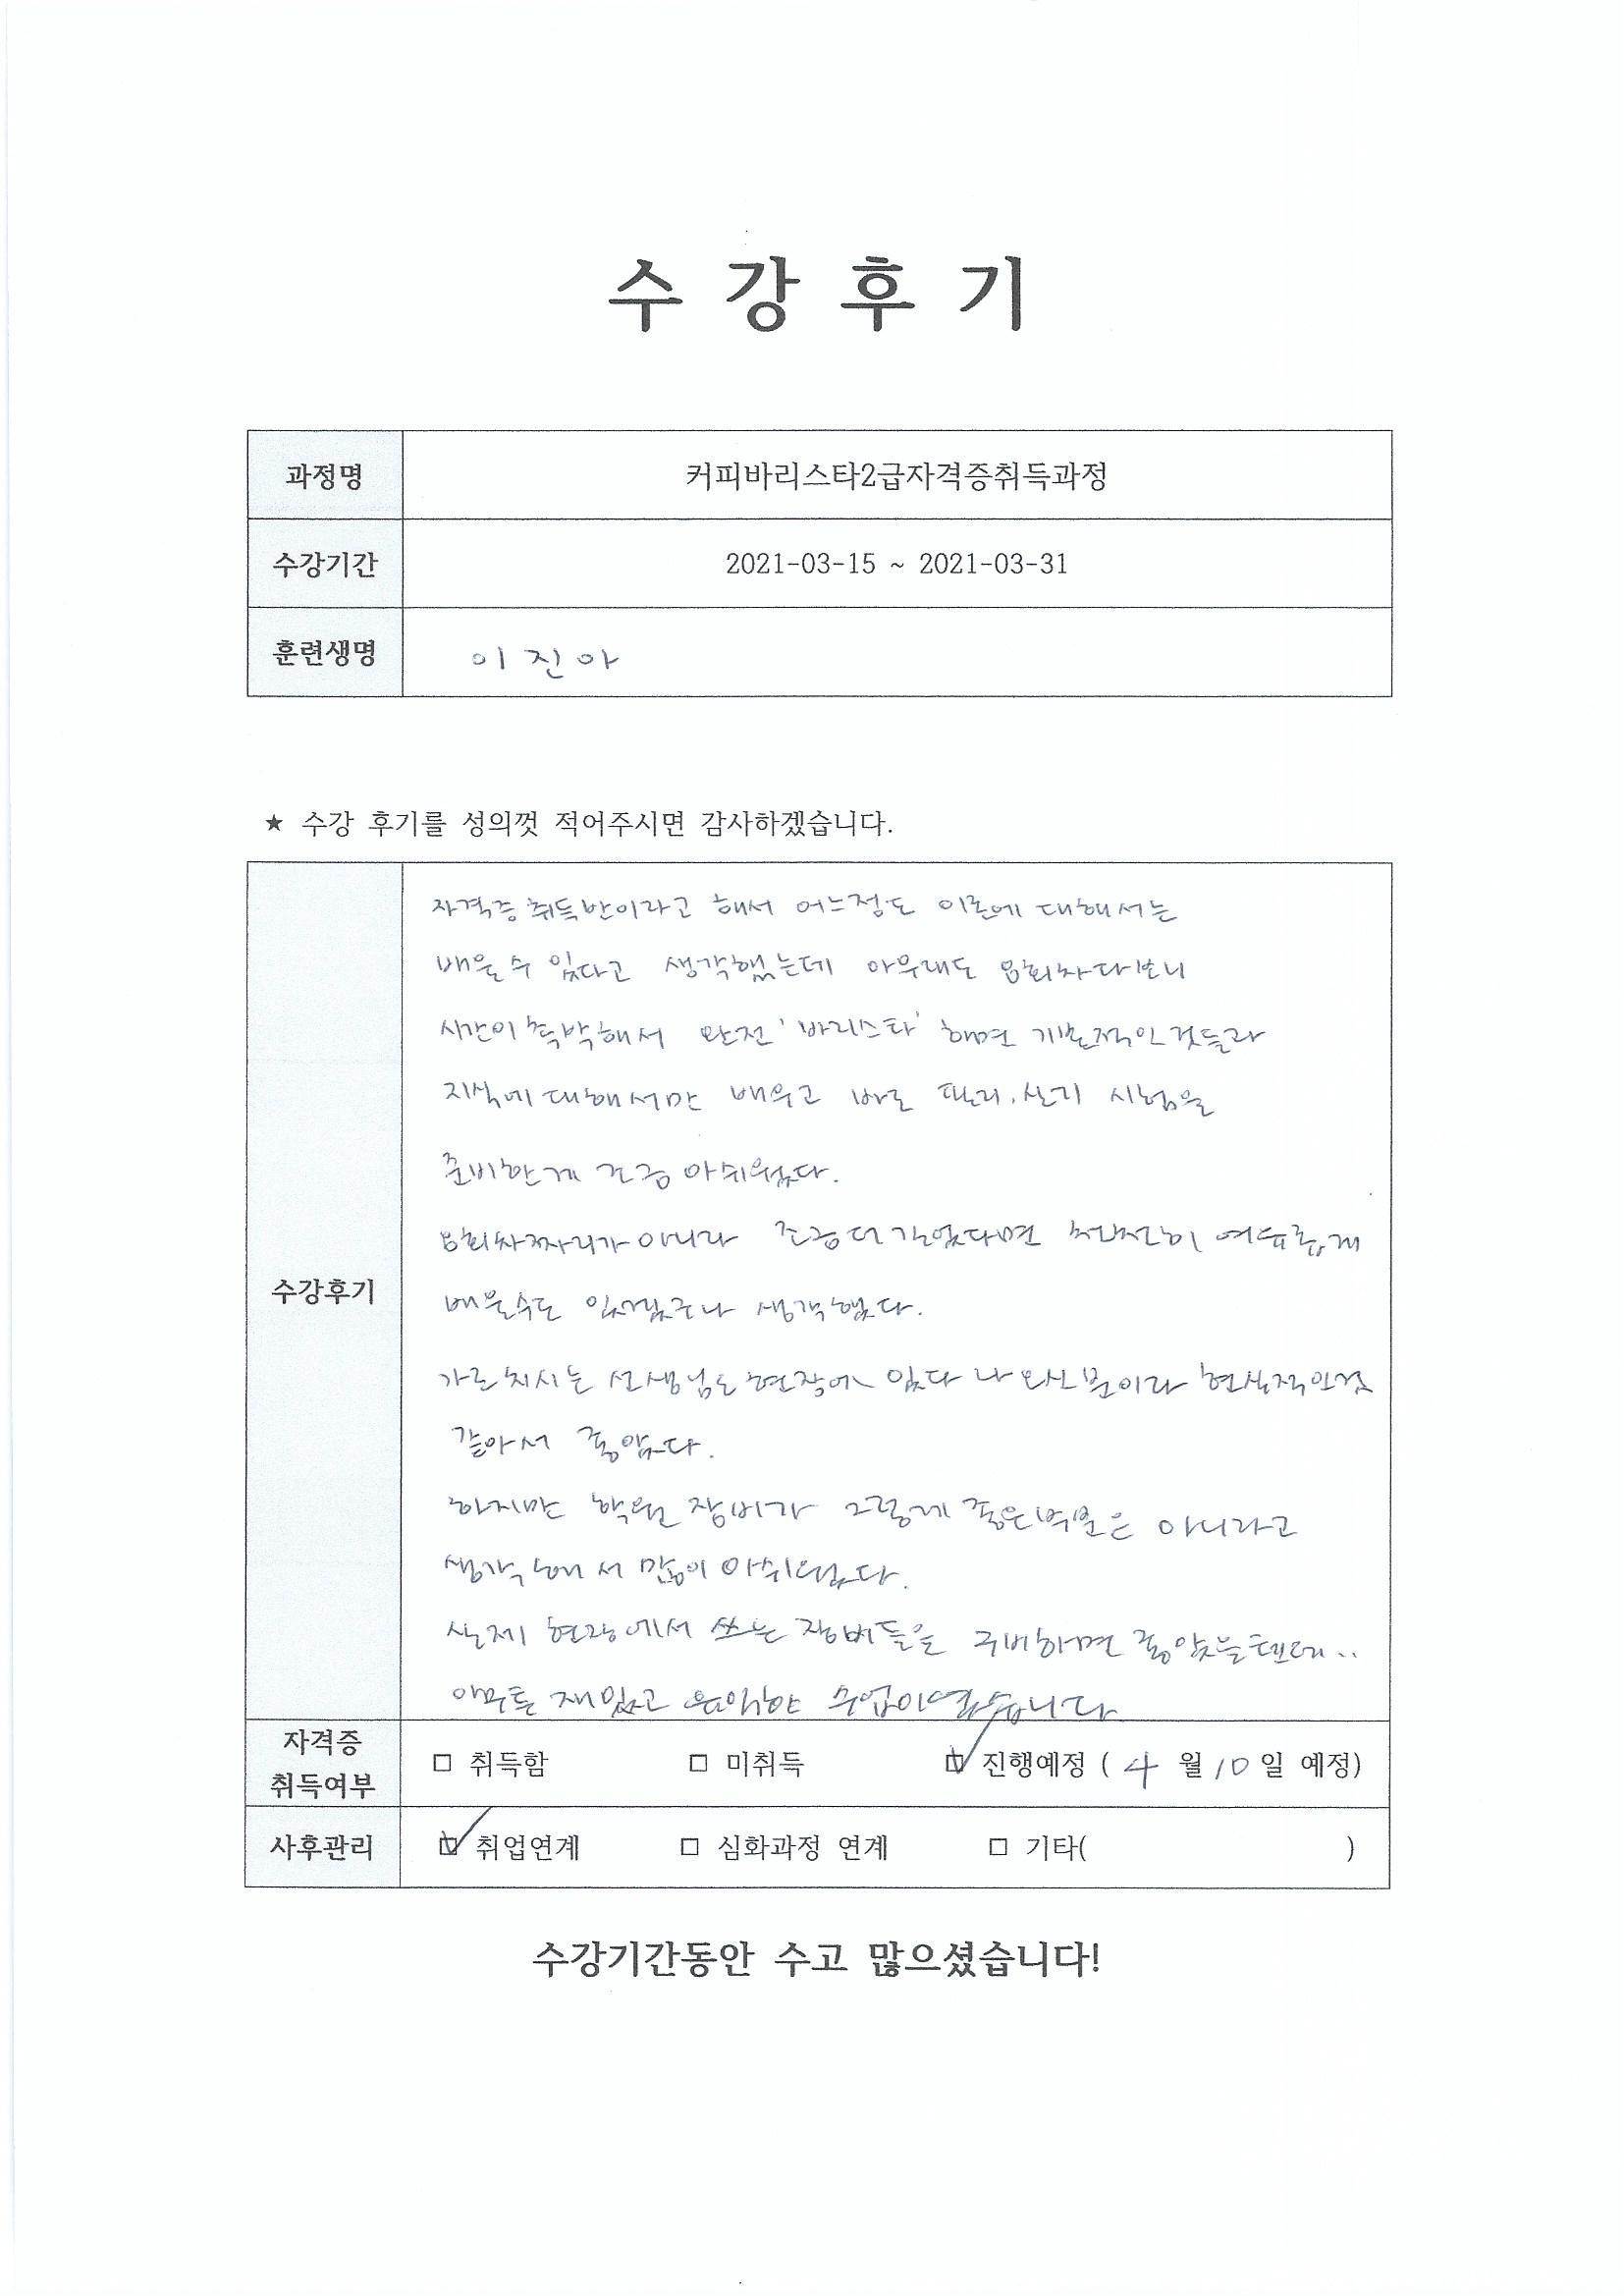 수강후기
과정명 커피바리스타2급자격증취득과정
수강기간 2021-03-15 ~ 2021-03-31
훈련생명 이진아
★ 수강 후기를 성의껏 적어주시면 감사하겠습니다.
수강후기
자격증취득반이라고 해서 어느정도 이론에 대해서는
배울수 있다고 생각했는데 아무래도 8회차다보니
시간이 촉박해서 완전 '바리스타' 하면 기본적인것들과
지식에 대해서만 배우고 바로 필기.실기 시험을
준비한게 조금 아쉬웠다.
8회차짜리가 아니라 조금더 길었다면 천천히 여유롭게
배울수도 있겠구나 생각했다.
가르치시는 선생님도 현장에 있다 나오신분이라 현실적인것
같아서 좋았다.
하지만 학원 장비가 그렇게 좋은편은 아니라고
생각해서 많이 아쉬웠다.
실제 현장에서 쓰는 장비들을 구비하면 좋았을텐데..
아무튼 재밌고 유익한 수업이였습니다
자격증 취득여부 □ 취득함 □ 미취득 ☑ 진행예정 ( 4 월 10 일 예정)
사후관리 ☑ 취업연계 □ 심화과정 연계 □ 기타( )
수강기간동안 수고 많으셨습니다!